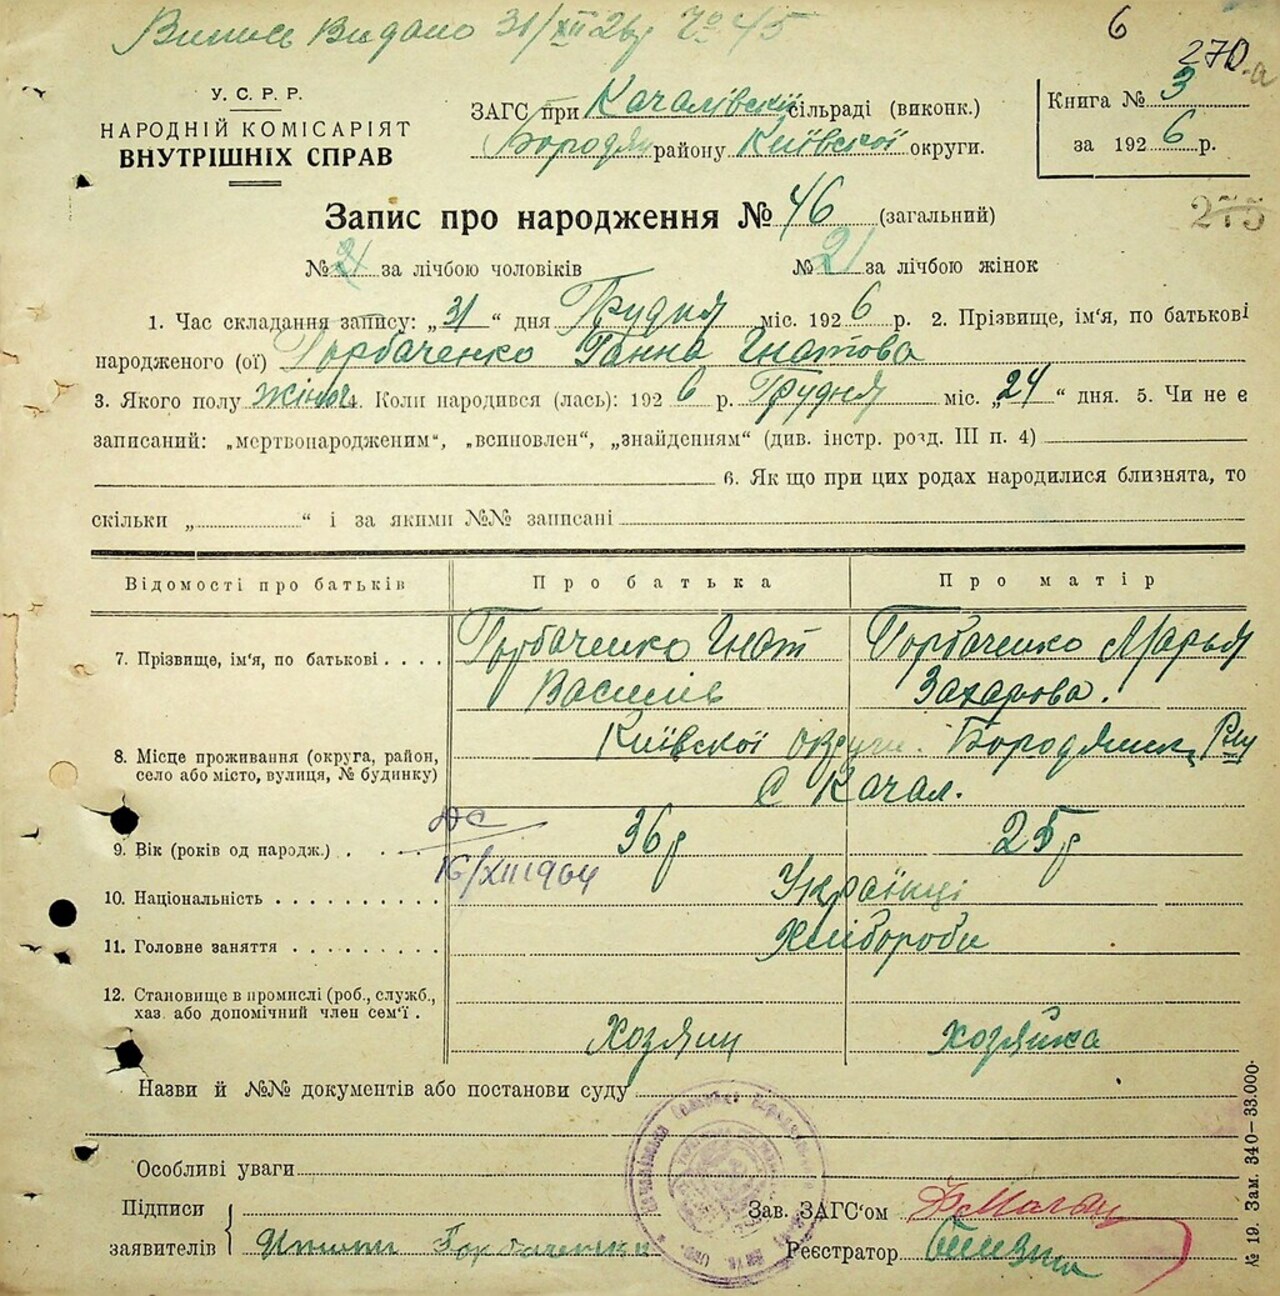 Випись Видано 31/XII 26 р № 45
6
270-а
У. С. Р. Р.
НАРОДНІЙ КОМІСАРІЯТ
ВНУТРІШНІХ СПРАВ
ЗАГС при Качалівській сільраді (виконк.)
Бородян району Київської округи.
Книга № 3
за 1926 р.
Запис про народження № 46 (загальний)
275
№ 21 за лічбою чоловіків № 21 за лічбою жінок
1. Час складання запису: „31“ дня Грудня міс. 1926 р. 2. Прізвище, ім'я, по батькові
народженого (ої) Горбаченко Ганна Гнатова
3. Якого полу жіноч 4. Коли народився (лась): 1926 р. Грудня міс. „24“ дня. 5. Чи не є
записаний: „мертвонародженим“, „всиновлен“, „знайденням“ (див. інстр. розд. III п. 4)
6. Як що при цих родах народилися близнята, то
скільки „ “ і за якими №№ записані
Відомості про батьків Про батька Про матір
7. Прізвище, ім'я, по батькові . . . . Горбаченко Гнат Горбаченко Марья
Василів Захарова.
8. Місце проживання (округа, район, село або місто, вулиця, № будинку) Київської округи. Бородянськ. Р-ну
С Качал.
9. Вік (років од народж.) . . . . 36 р 25 р
16/XII 1964
10. Національність . . . . . . . . . . Українці
11. Головне заняття . . . . . . . . . Хлібороби
12. Становище в промислі (роб., служб.,
хаз. або допомічний член сем'ї .
Хозяин хозяйка
Назви й №№ документів або постанови суду
Особливі уваги
Підписи
заявителів
Горбаченко
Зав. ЗАГС'ом
Реєстратор
№ 19. Зам. 340—33.000.